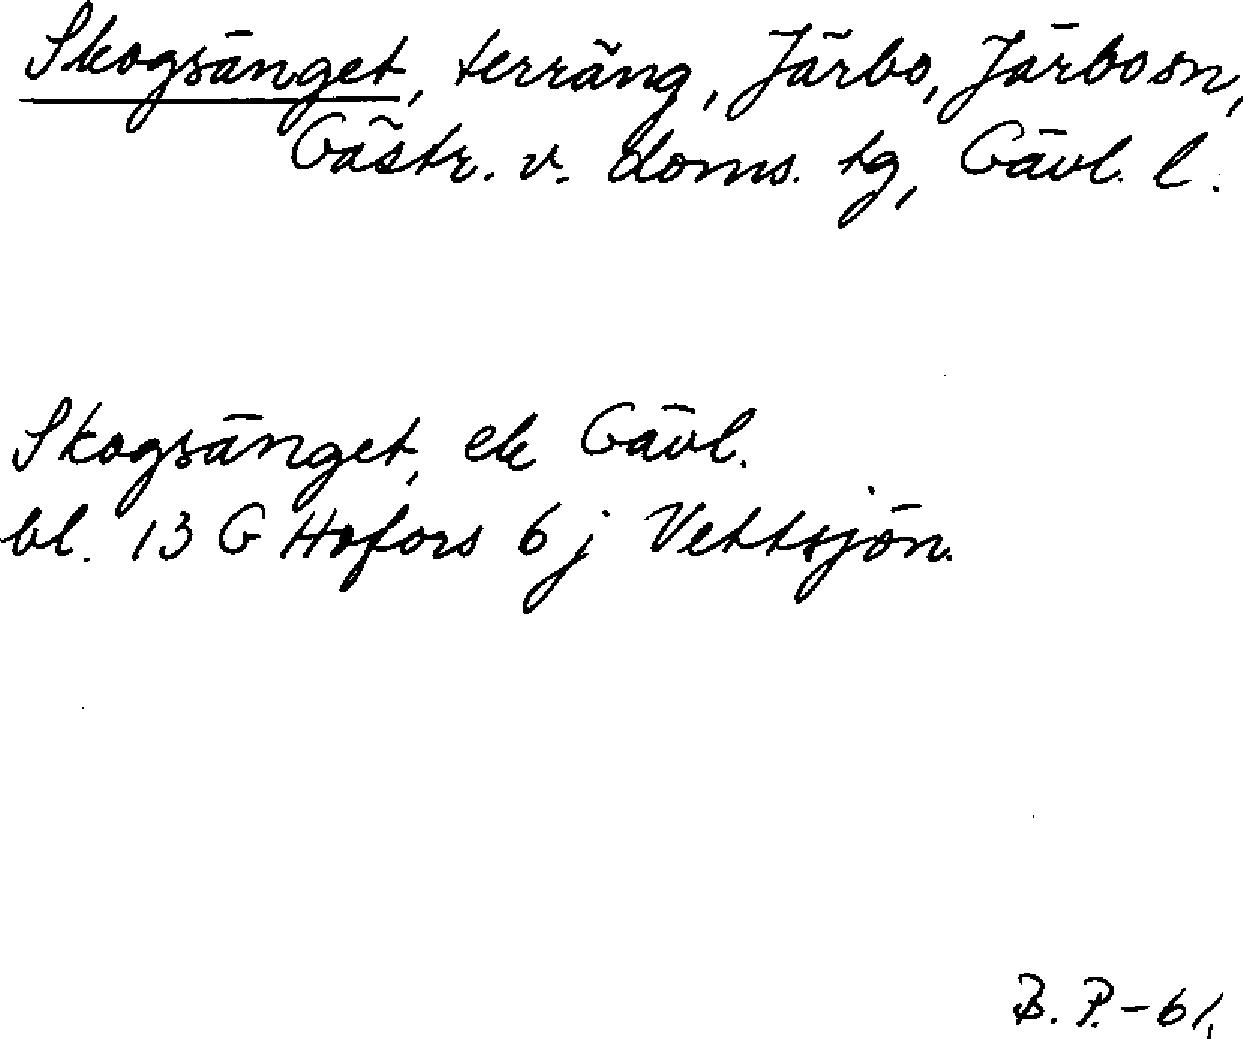 Skogsänget, terräng, Järbo, Järbo sn,
Gästr. v. doms. tg, Gävl. l.
Skogsänget, ek Gävl.
bl. 13 G Hofors 6 j Vettsjön.
B. P. - 61.